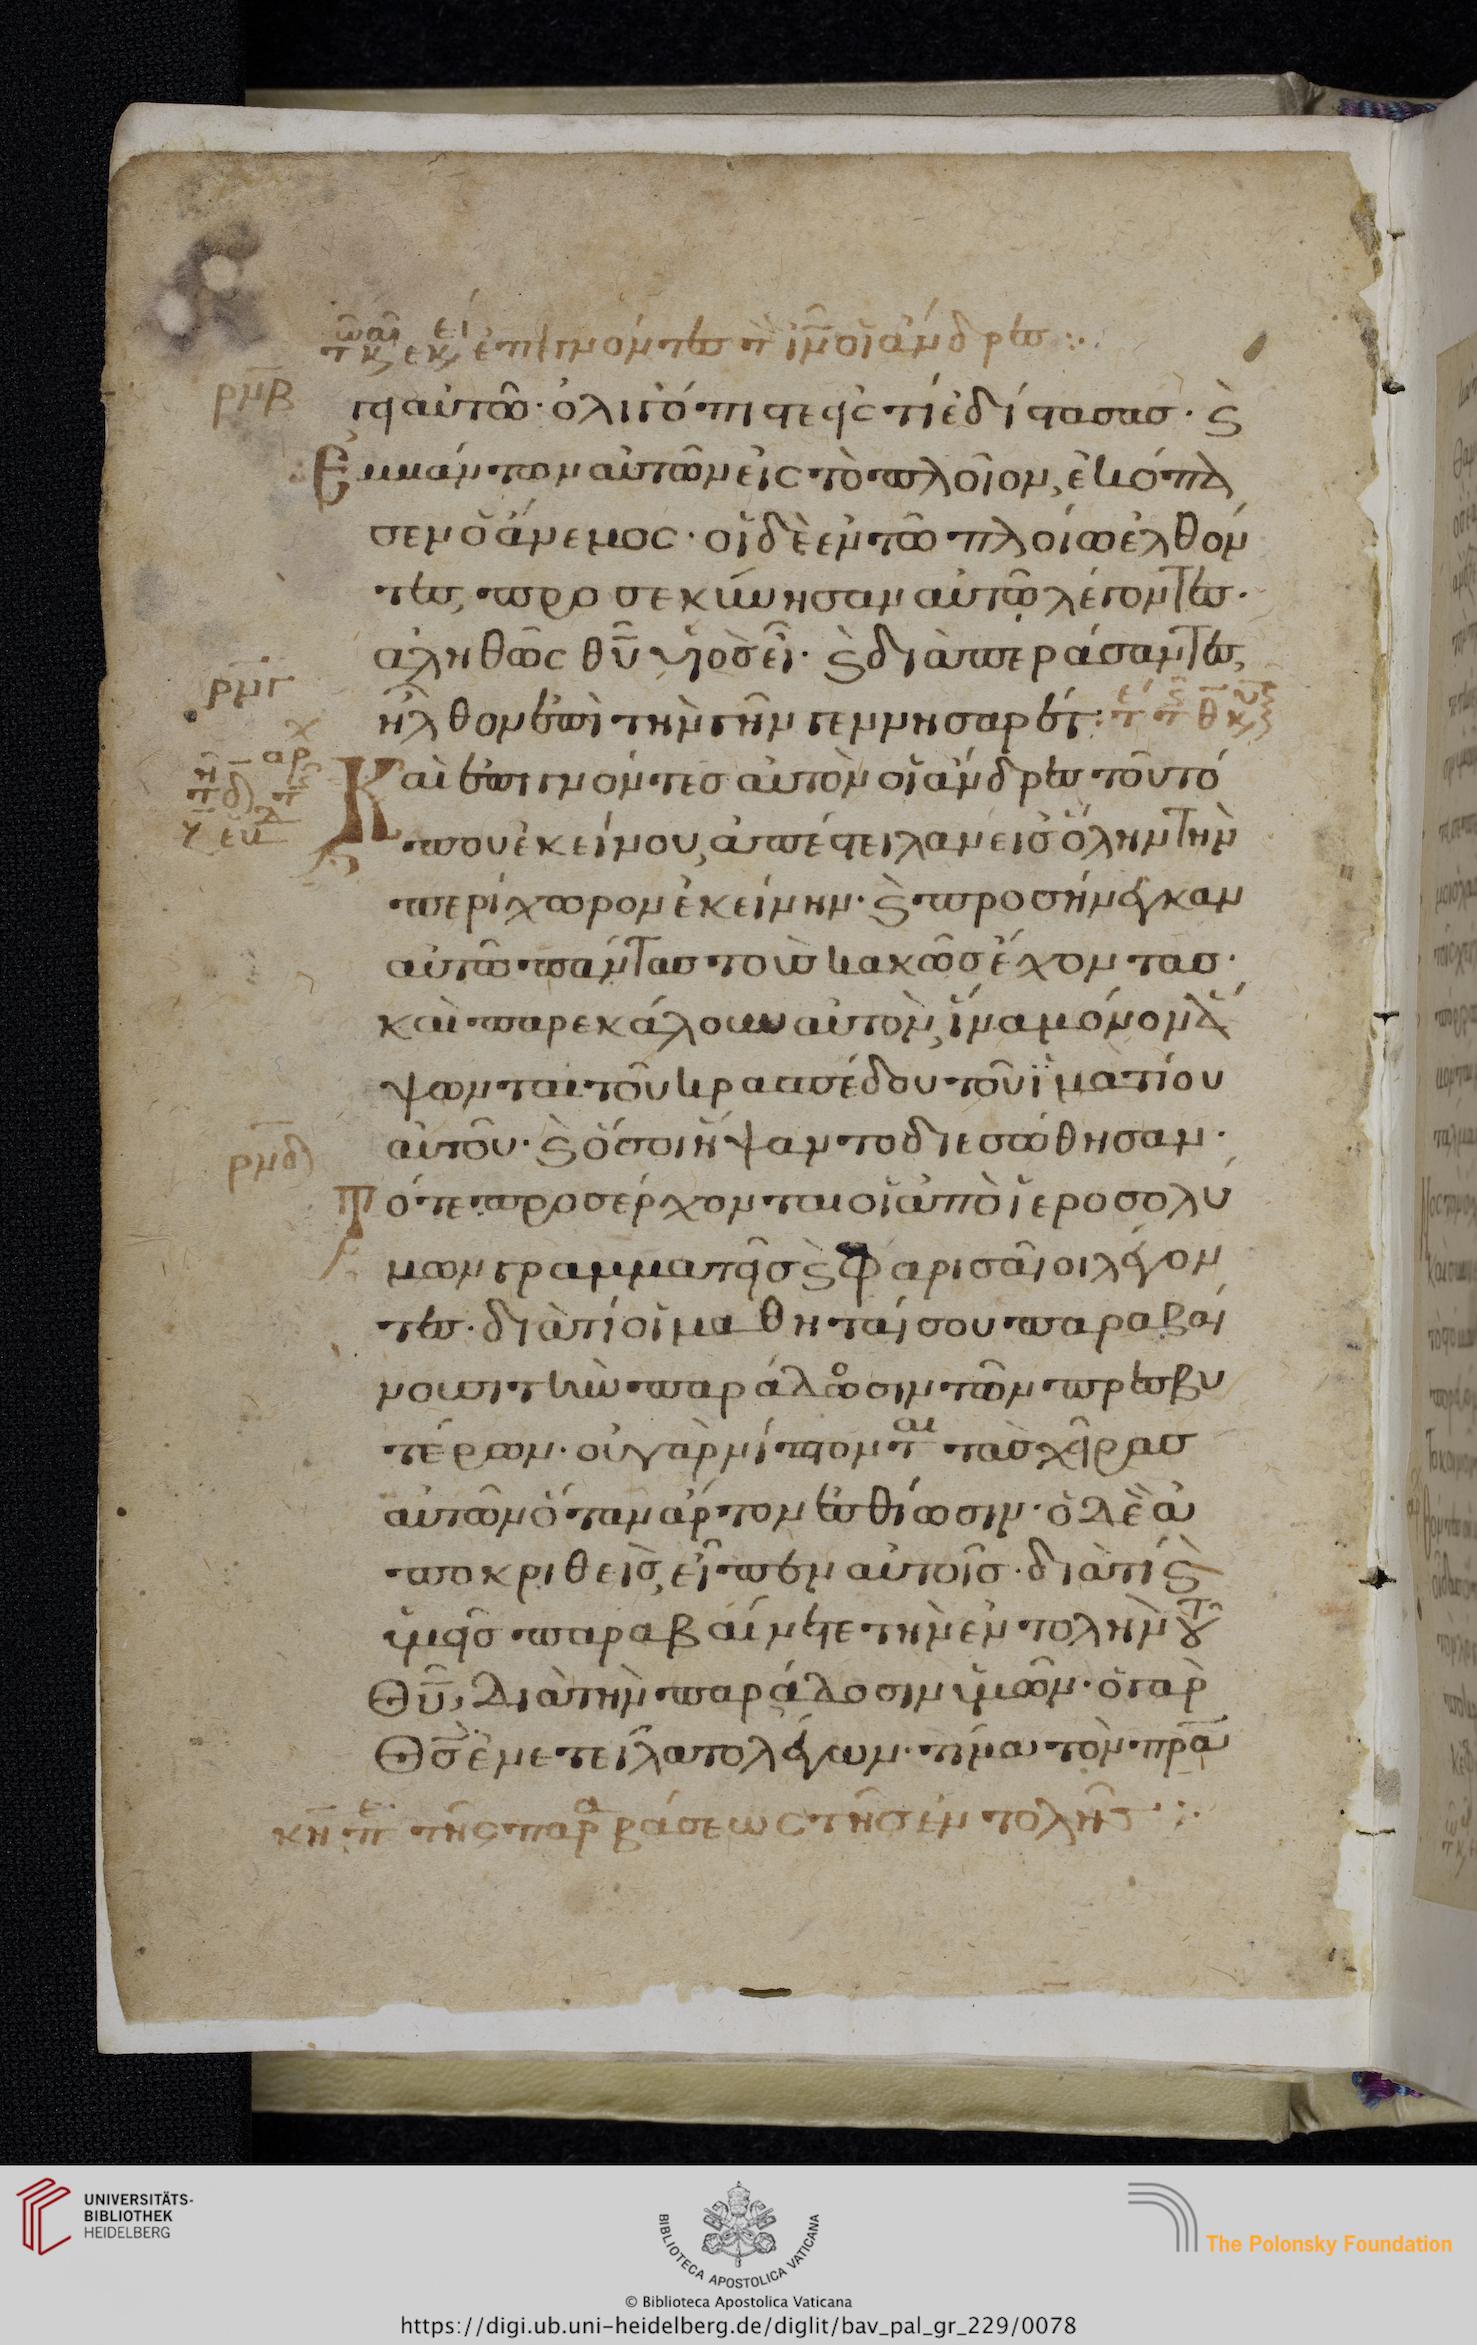 τῶ και ἐκεί ἐπιγνόντες τ ἰν οἱ ἄνδρες
ρμβ
γει αὐτῶ· ὀλιγόπιστε εἰς τί ἐδίστασας· ϗ
Ἐμβάντων αὐτῶν εἰς τὸ πλοῖον, ἐκόπα
σεν ὁ ἄνεμος· οἱ δὲ ἐν τῶ πλοίω ἐλθόν
τες, προσεκύνησαν αὐτῶ λέγοντες·
ἀληθῶς θῦ υἱὸς εἶ· ϗ διαπεράσαντες,
ρμγ
ἦλθον ἐπὶ τὴν γῆν γεννησαρέτ:
Καὶ ἐπιγνόντες αὐτὸν οἱ ἄνδρες τοῦ τό
που ἐκείνου, ἀπέστειλαν εἰς ὅλην τὴν
περίχωρον ἐκείνην· ϗ προσήνεγκαν
αὐτῶ πάντας τοὺς κακῶς ἔχοντας·
καὶ παρεκάλουν αὐτὸν, ἵνα μόνον ἅ
ψωνται τοῦ κρασπέδου τοῦ ἱματίου
αὐτοῦ· ϗ ὅσοι ἥψαντο διεσώθησαν·
ρμδ
Τότε προσέρχονται οἱ ἀπὸ ἱεροσολύ
μων γραμματεῖς ϗ φαρισαῖοι λέγον
τες· διατί οἱ μαθηταί σου παραβαί
νουσι τὴν παράδοσιν τῶν πρεσβυ
τέρων· οὐ γὰρ νίπτονται τὰς χεῖρας
αὐτῶν ὅταν ἄρτον ἐσθίωσιν· ὁ δὲ ἀ
ποκριθεὶς, εἶπεν αὐτοῖς· διατί ϗ
ὑμεῖς παραβαίνετε τὴν ἐντολὴν τοῦ
Θῦ, διὰ τὴν παράδοσιν ὑμῶν· ὁ γὰρ
Θς ἐνετείλατο λέγων· τίμα τὸν πρα
κη π τῆς παραβάσεως τῆς ἐντολῆς
UNIVERSITÄTS-
BIBLIOTHEK
HEIDELBERG
BIBLIOTECA APOSTOLICA VATICANA
The Polonsky Foundation
© Biblioteca Apostolica Vaticana
https://digi.ub.uni-heidelberg.de/diglit/bav_pal_gr_229/0078